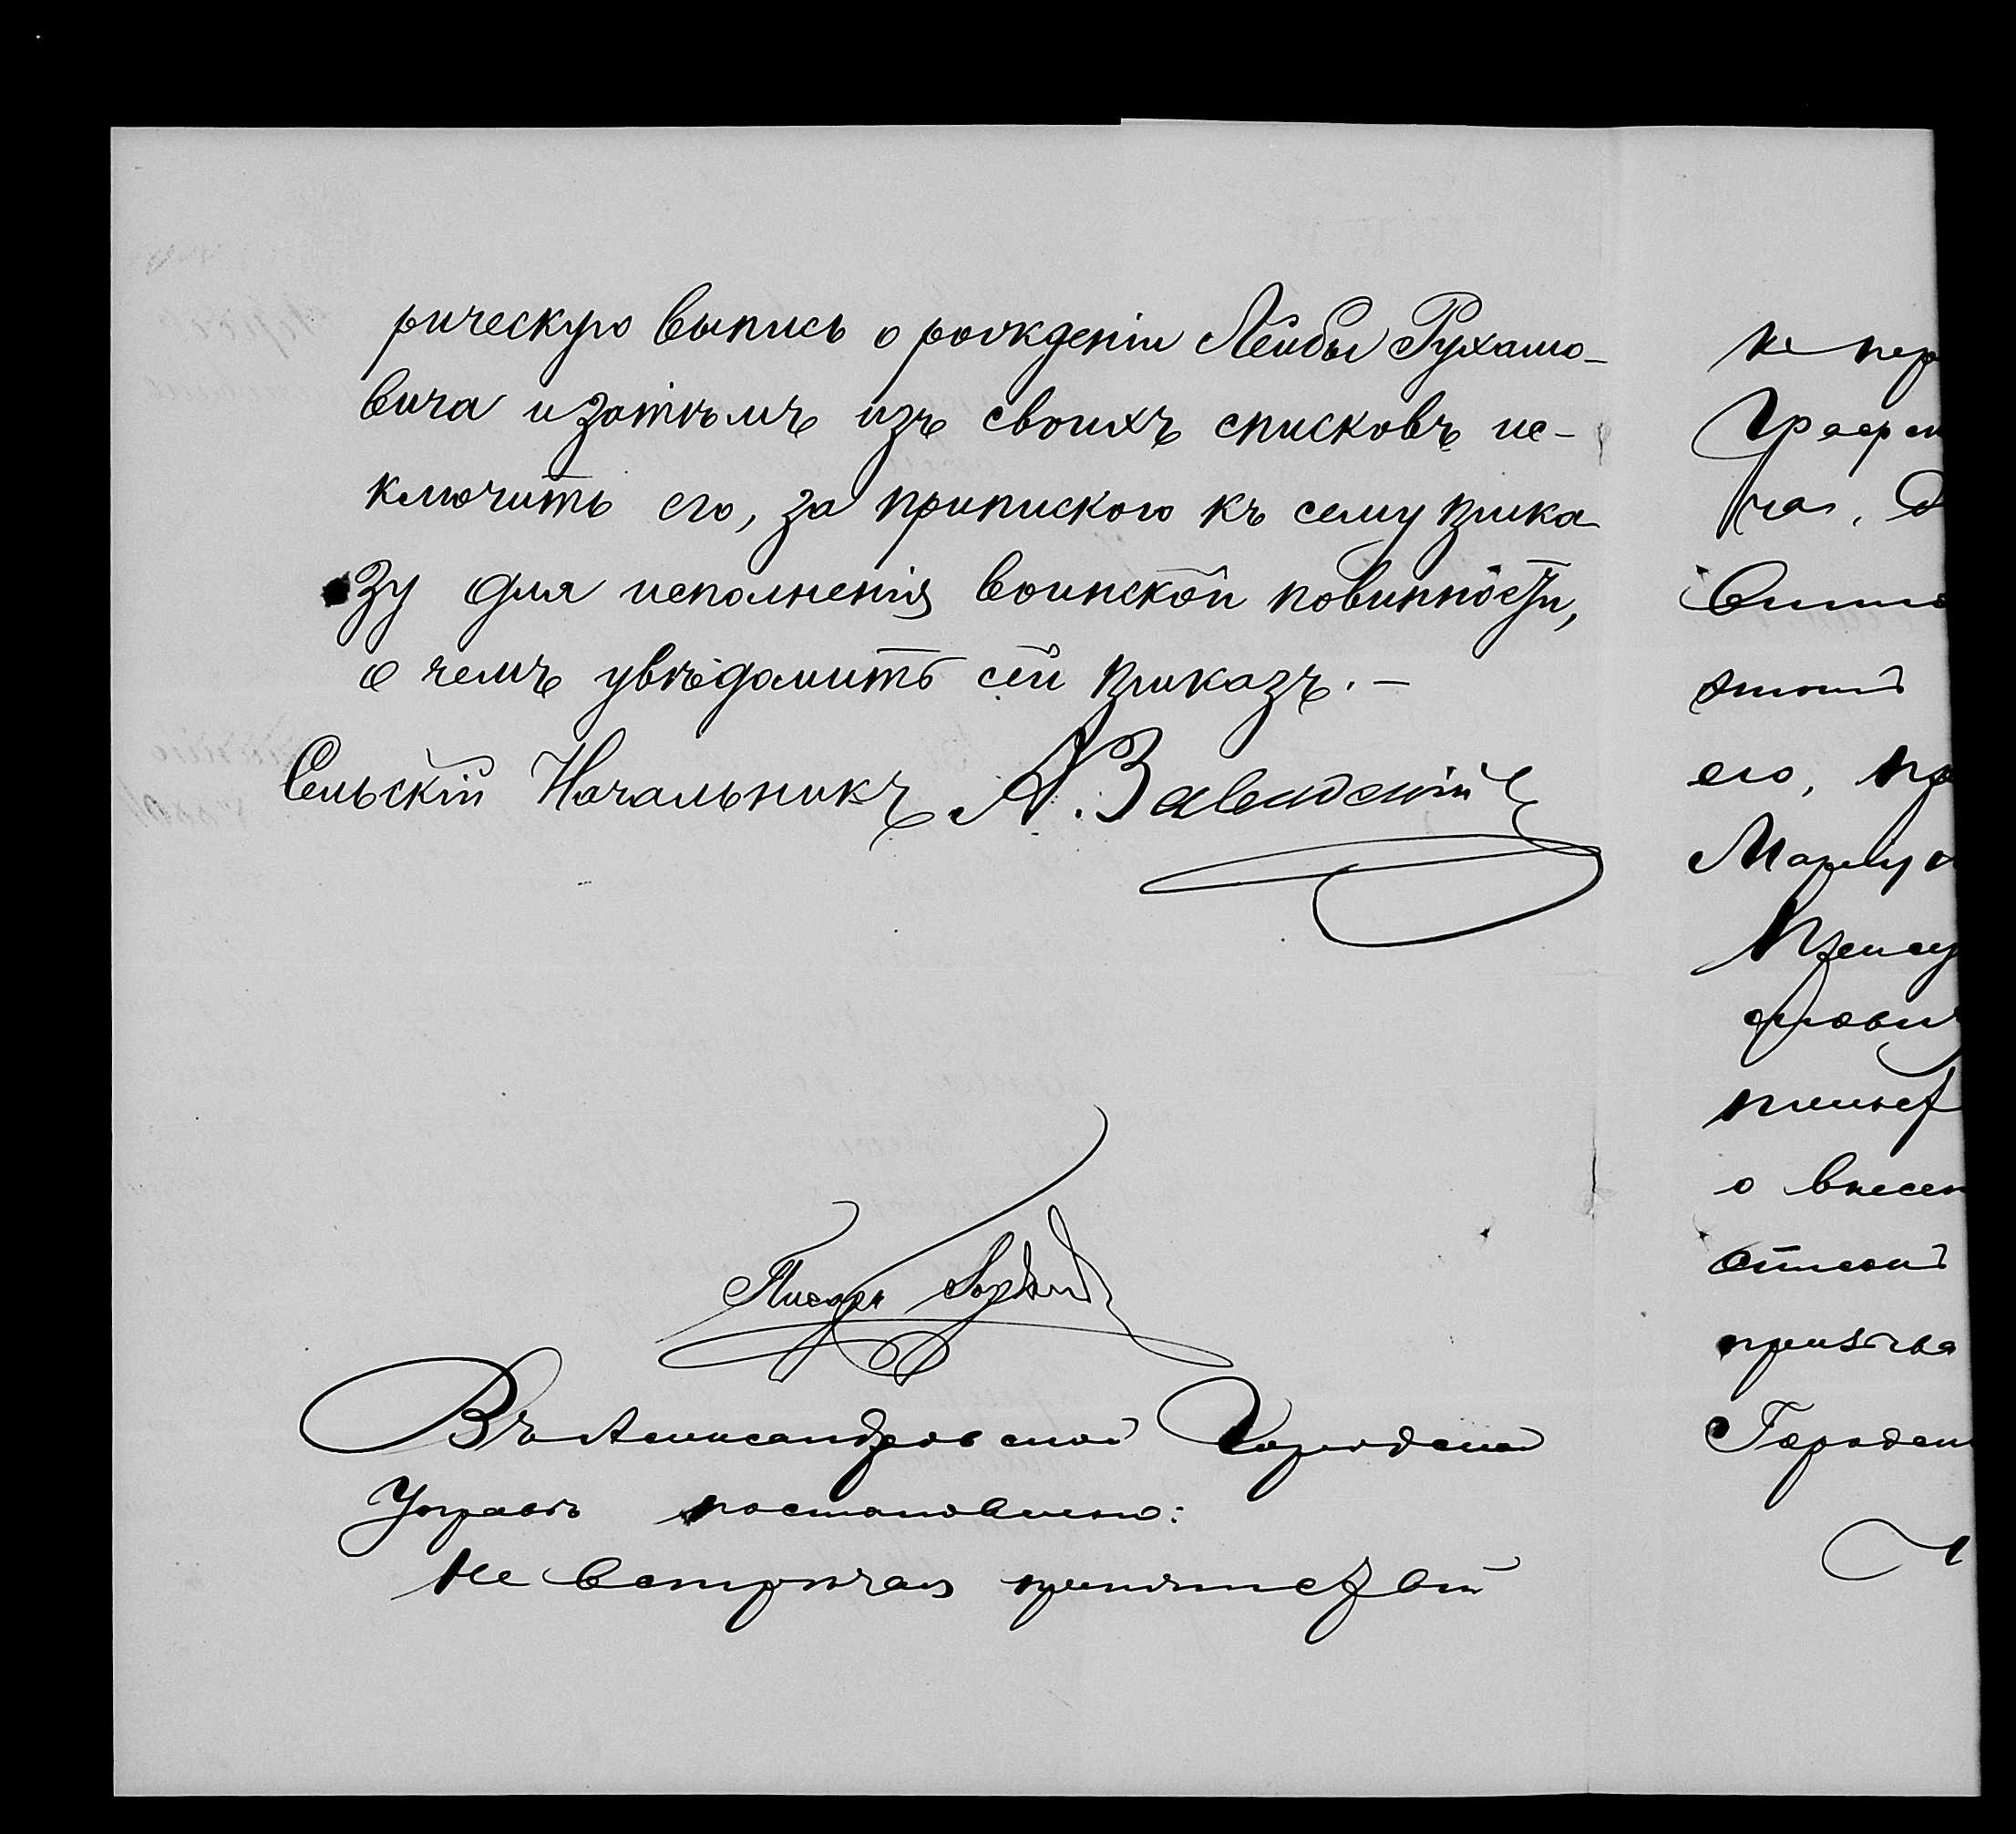 рическую выпись о рожденіи Лейбы Рухамо-
вича и затѣмъ изъ своихъ списковъ ис-
ключить его, за припискою къ сему прика
зу для исполненія воинской повинности,
о чемъ увѣдомить сей приказъ. —
Сельскій Начальникъ А. Завидскій
Писарь
Въ Александровской Городской
Управѣ постановлено:
Не встрѣчая препятствій
къ пер
ча, д
его, пр
о внесен
списокъ
призыва
Городск